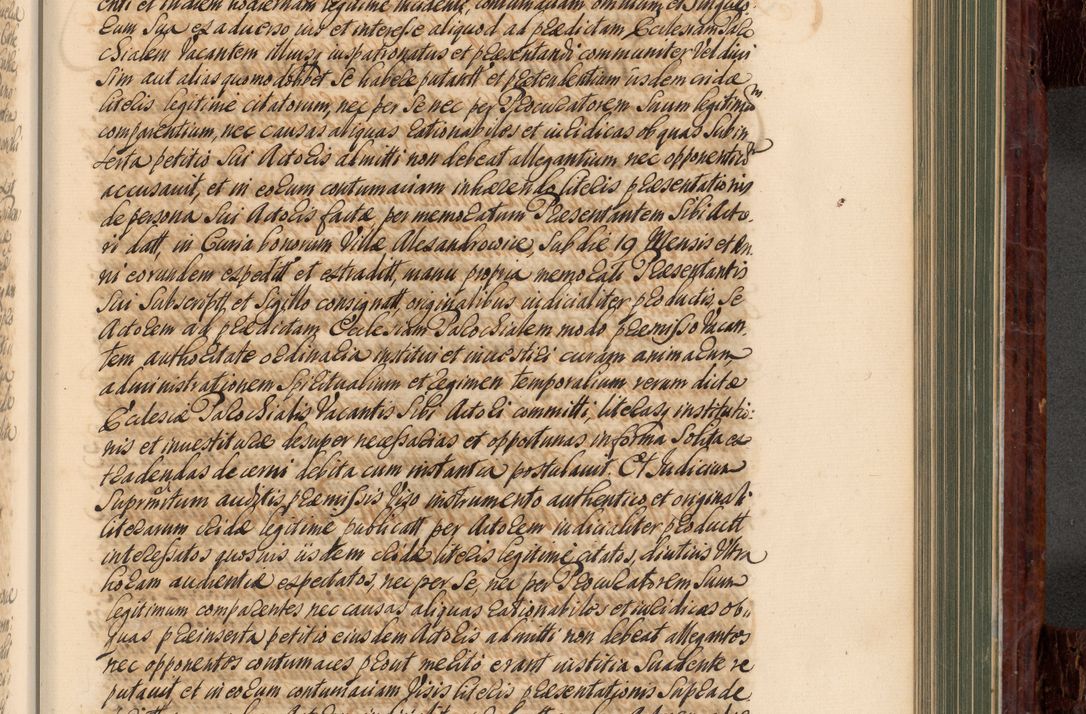 enti et in diem hodiernam legitime incidenti, contumaciam omnium et singulo:
rum sua ex adverso ius et interesse aliquod ad praedictam Ecclesiam Paro
chialem vacantem illiusq iuspatronatus et praesentandi communiter vel divi
sim aut alias quomodolibet se habere putantt et praetendentium iisdem cridae
literis legitime citatorum, nec per se nec per Procuratorem suum legitimum
comparentium, nec causas aliquas rationabiles et iuridicas ob quas subin
serta petitio sui Actoris admitti non debeat allegantium nec opponentium
accusavit, et in eorum contumaciam inhaerendo literis praesentationis
de persona sui Actoris factae per memoratum Praesentantem sibi Acto
ri datt, in Curia bonorum Villae Alexandrowice, sub die 19 Mensis et An
ni eorundem expedit et extraditt manu propria memorati Praesentantis
sui subscriptt et sigillo consignatt originalibus iudicialiter productis, se
Actorem ad praedictam Ecclesiam Parochialem modo praemisso vacan
tem authoritate ordinaria institui et investiri curam animarum
administrationem spiritualium et regimen temporalium rerum dictae
Ecclesiae Parochialis vacantis sibi Actori committi, literasq institutio:
nis et investiturae desuper necessarias et opportunas in forma solita ex
tradendas decerni debita cum instantia postulavit. Et Iudicium
supramtum auditis praemissis viso instrumento authentico et originali
literarum cridae legitime publicatt per Actorem iudicialiter productt
interessatos quosvis iisdem cridae literis legitime citatos, diutius ultra
horam audientiae expectatos, nec per se, nec per Procuratorem suum
legitimum comparentes nec causas aliquas rationabiles et iuridicas ob
quas praeinserta petitio eiusdem Actoris admitti non debeat allegantes
nec opponentes contumaces prout merito erant iustitia suadente re
putavit et in eorum contumaciam visis literis praesentationis suprade